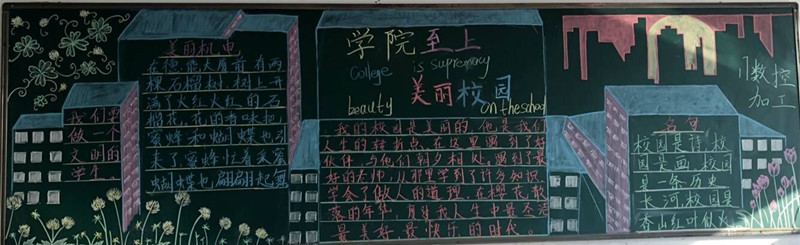 我们要
做一个
文明的
学生
美丽机电
在德能大唐前有两
棵石榴树树上开
满了火红火红的石
榴花,花的香味把
蜜蜂和蝴蝶也引
来了蜜蜂忙着采蜜
蝴蝶也翩翩起舞
学院至上
College is supremacy
美丽校园
beauty on the school
我的校园是美丽的,他是我们
人生的转折点,在这里遇到了好
伙伴,与他们朝夕相处,遇到了最
好的老师,从那里学到了许多知识
学会了做人的道理,在樱花散
落的年华,有着我人生中最圣洁
最美好最快乐的时代。
17数控
加工
名句
校园是诗,校
园是画,校园
是一条历史
长河校园是
香山红叶似火